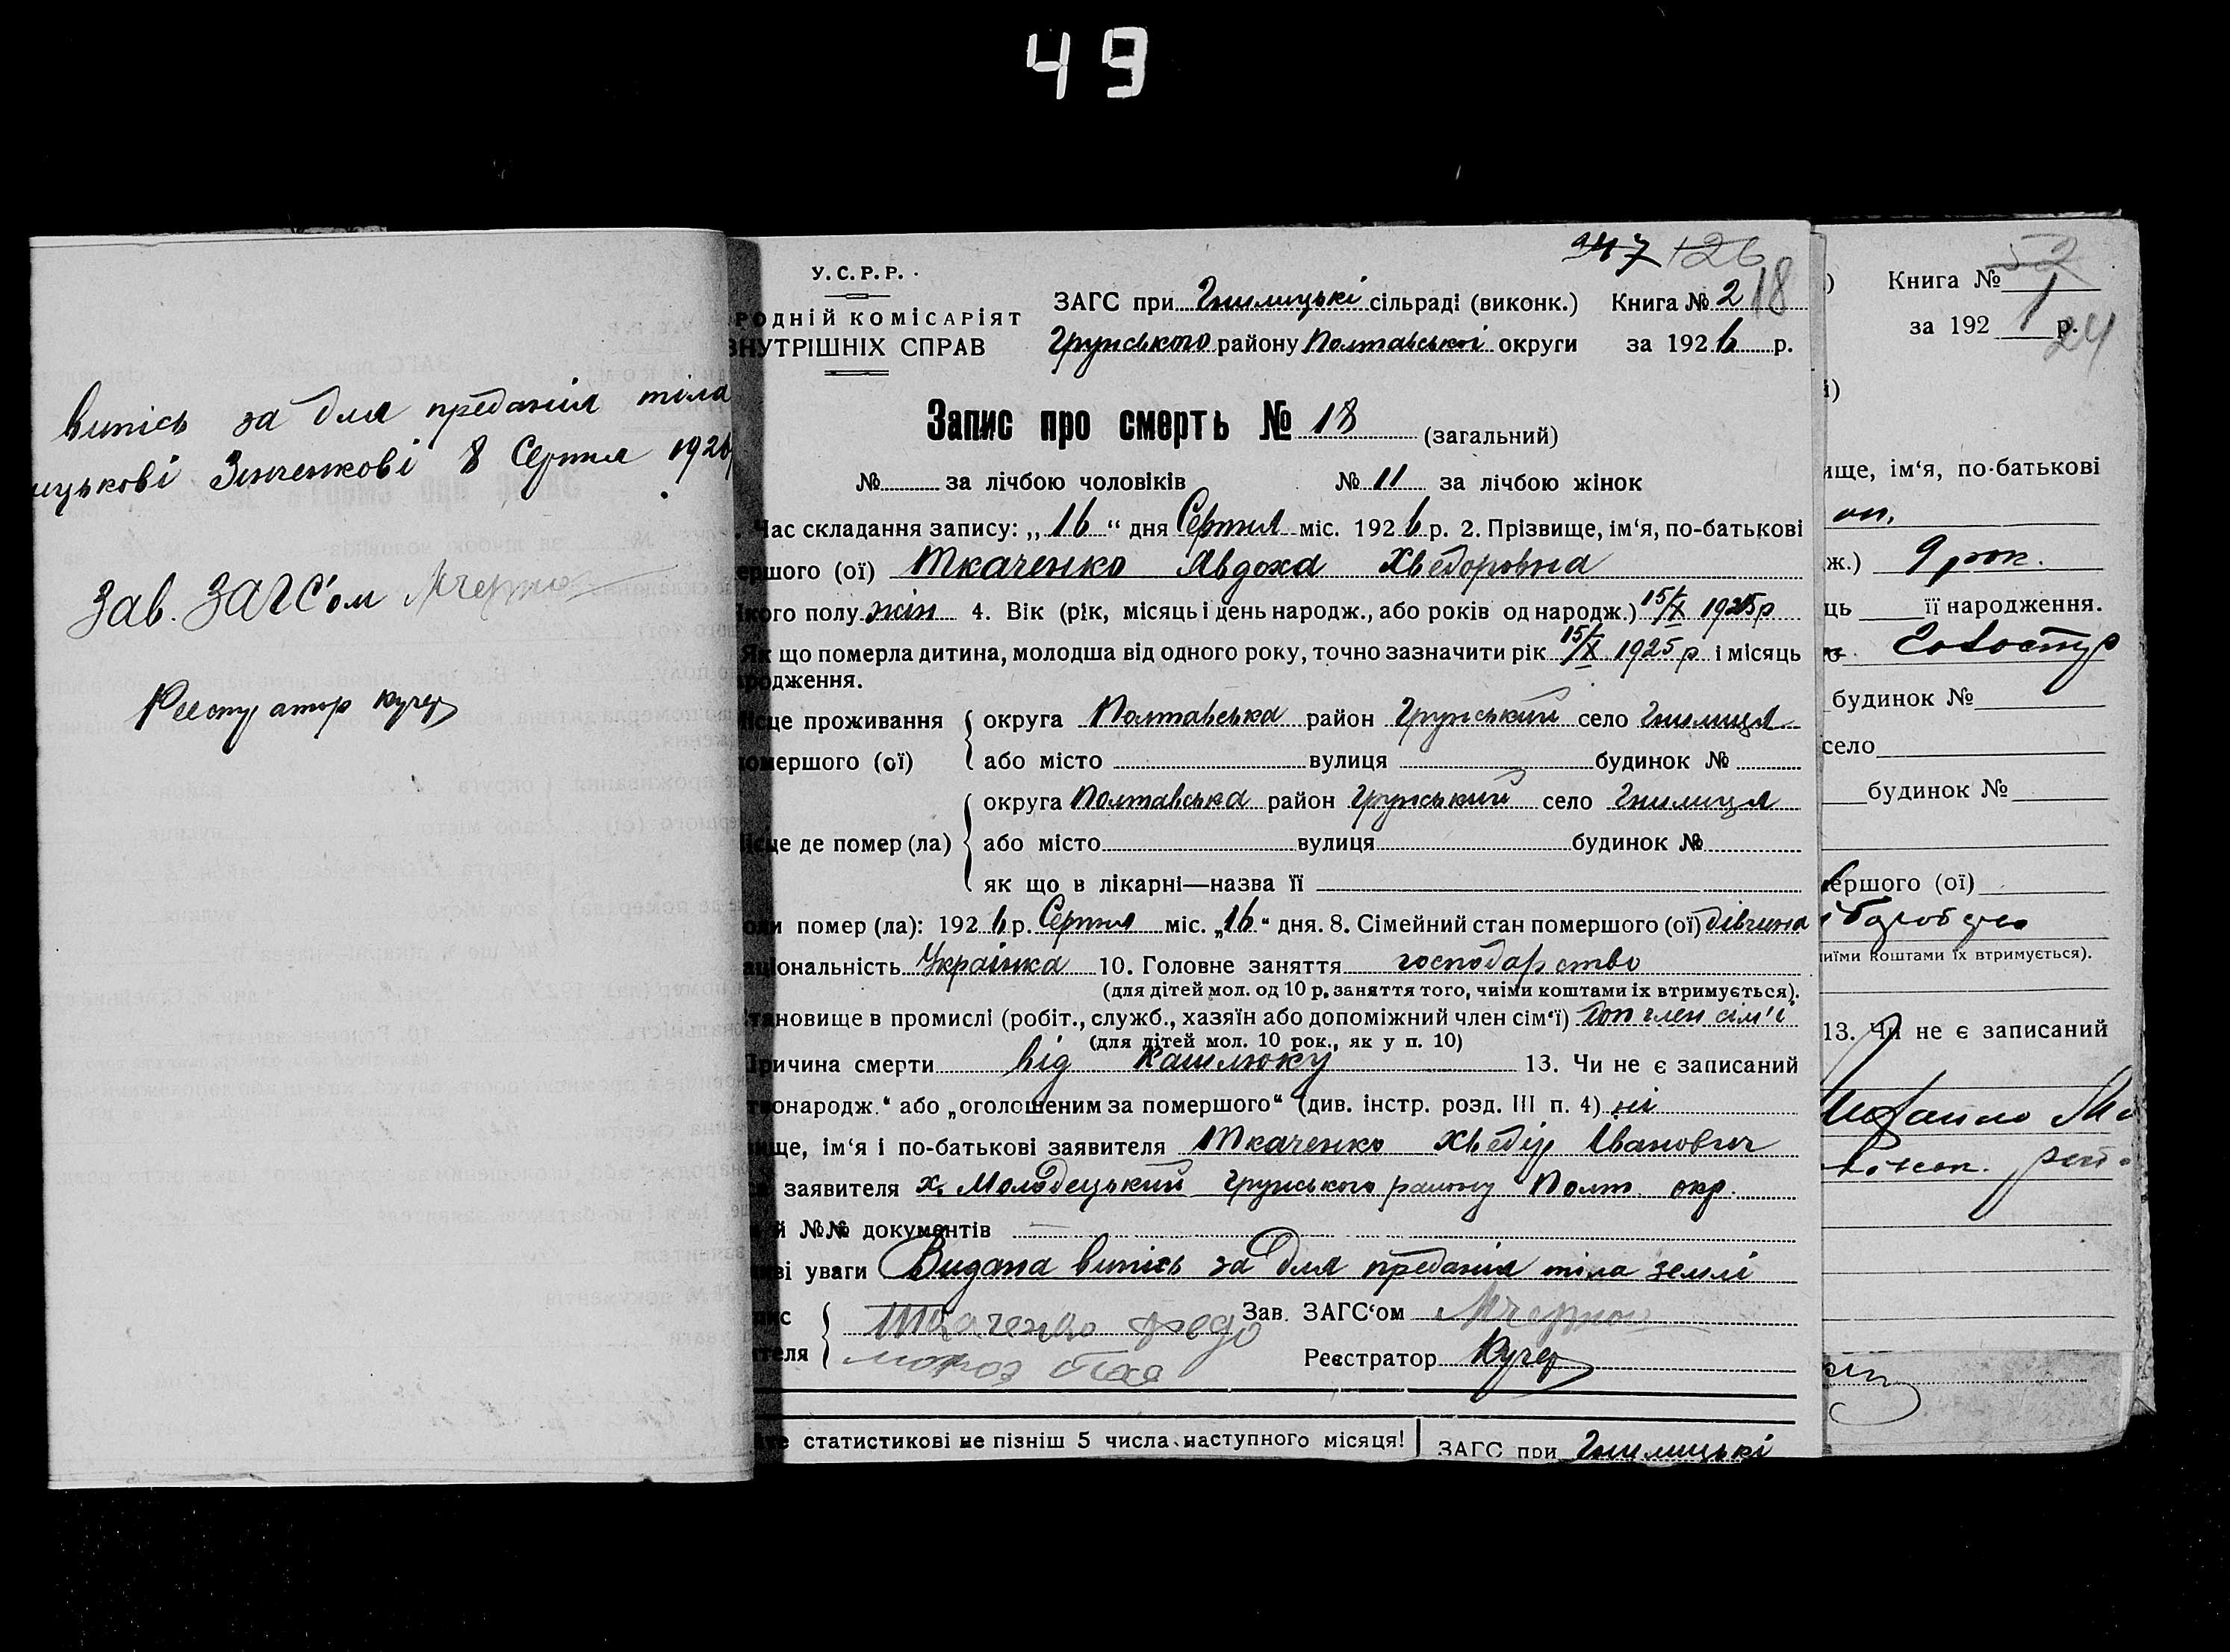 49
випісь за для преданія тіла
ицькові Зінченкові 8 Серпня 1926
Зав. ЗАГС'ом
Реєстратор Кучер
247 126
У.С.Р.Р.
РОДНІЙ КОМІСАРІЯТ
ВНУТРІШНІХ СПРАВ
ЗАГС при Гнилицькі сільраді (виконк.) Книга № 2 18
Грунського району Полтавської округи за 1926 р.
Запис про смерть № 18 (загальний)
№ за лічбою чоловіків № 11 за лічбою жінок
Час складання запису: „16“ дня Серпня міс. 1926 р. 2. Прізвище, ім‘я, по-батькові
ершого (ої) Ткаченко Явдоха Хведоровна
якого полу жін 4. Вік (рік, місяць і день народж., або років од народж.) 15/X 1925 р
Як що померла дитина, молодша від одного року, точно зазначити рік 15/X 1925 р і місяць
родження.
ісце проживання округа Полтавська район Грунський село Гнилиця
омершого (ої) або місто вулиця будинок №
округа Полтавська район Грунський село Гнилиця
ісце де помер (ла) або місто вулиця будинок №
як що в лікарні—назва її
оли помер (ла): 1926 р. Серпня міс. „16“ дня. 8. Сімейний стан помершого (ої) дівчина
аціональність Українка 10. Головне заняття господарство
(для дітей мол. од 10 р. заняття того, чиїми коштами їх втримується).
тановище в промислі (робіт., служб., хазяїн або допоміжний член сім‘ї) доп член сім'ї
(для дітей мол. 10 рок., як у п. 10)
Причина смерти від кашлюку 13. Чи не є записаний
вонародж.“ або „оголошеним за помершого“ (див. інстр. розд. III п. 4) ні
вище, ім‘я і по-батькові заявителя Ткаченко Хведір Іванович
заявителя х. Молодецький Грунського району Полт. окр.
й №№ документів
ві уваги Видана випісь за для преданія тіла землі
пис Ткаченко Федо Зав. ЗАГС‘ом
ителя Реєстратор Кучер
те статистикові не пізніш 5 числа наступного місяця! ЗАГС при Гнилицькі
Книга № 52 1
за 192 р. 24
ище, ім‘я, по-батькові
ж.) 9 рок.
ць її народження.
будинок №
село
будинок №
ершого (ої)
чиїми коштами їх втримується).
13. Чи не є записаний